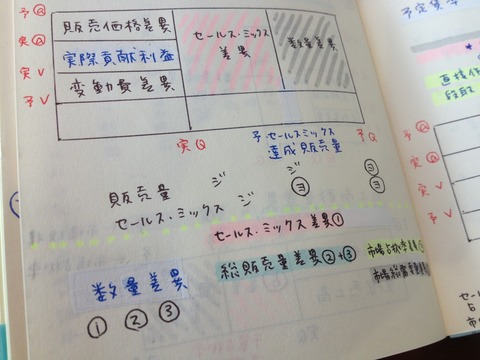 予@ 販売価格差異 セールス・ミックス差異 数量差異
実@ 実際貢献利益
実V 変動費差異
予V
実Q 予セールスミックス達成販売量 予Q
販売量 ジ ③ ③
セールス・ミックス ジ ジ ヨ ヨ
セールス・ミックス差異①
数量差異 総販売量差異②+③ 市場占拠率差異
市場総需要量差異
① ② ③
予定貸率
直接作
段取
予@
実@
実V
予V
セー
占
市